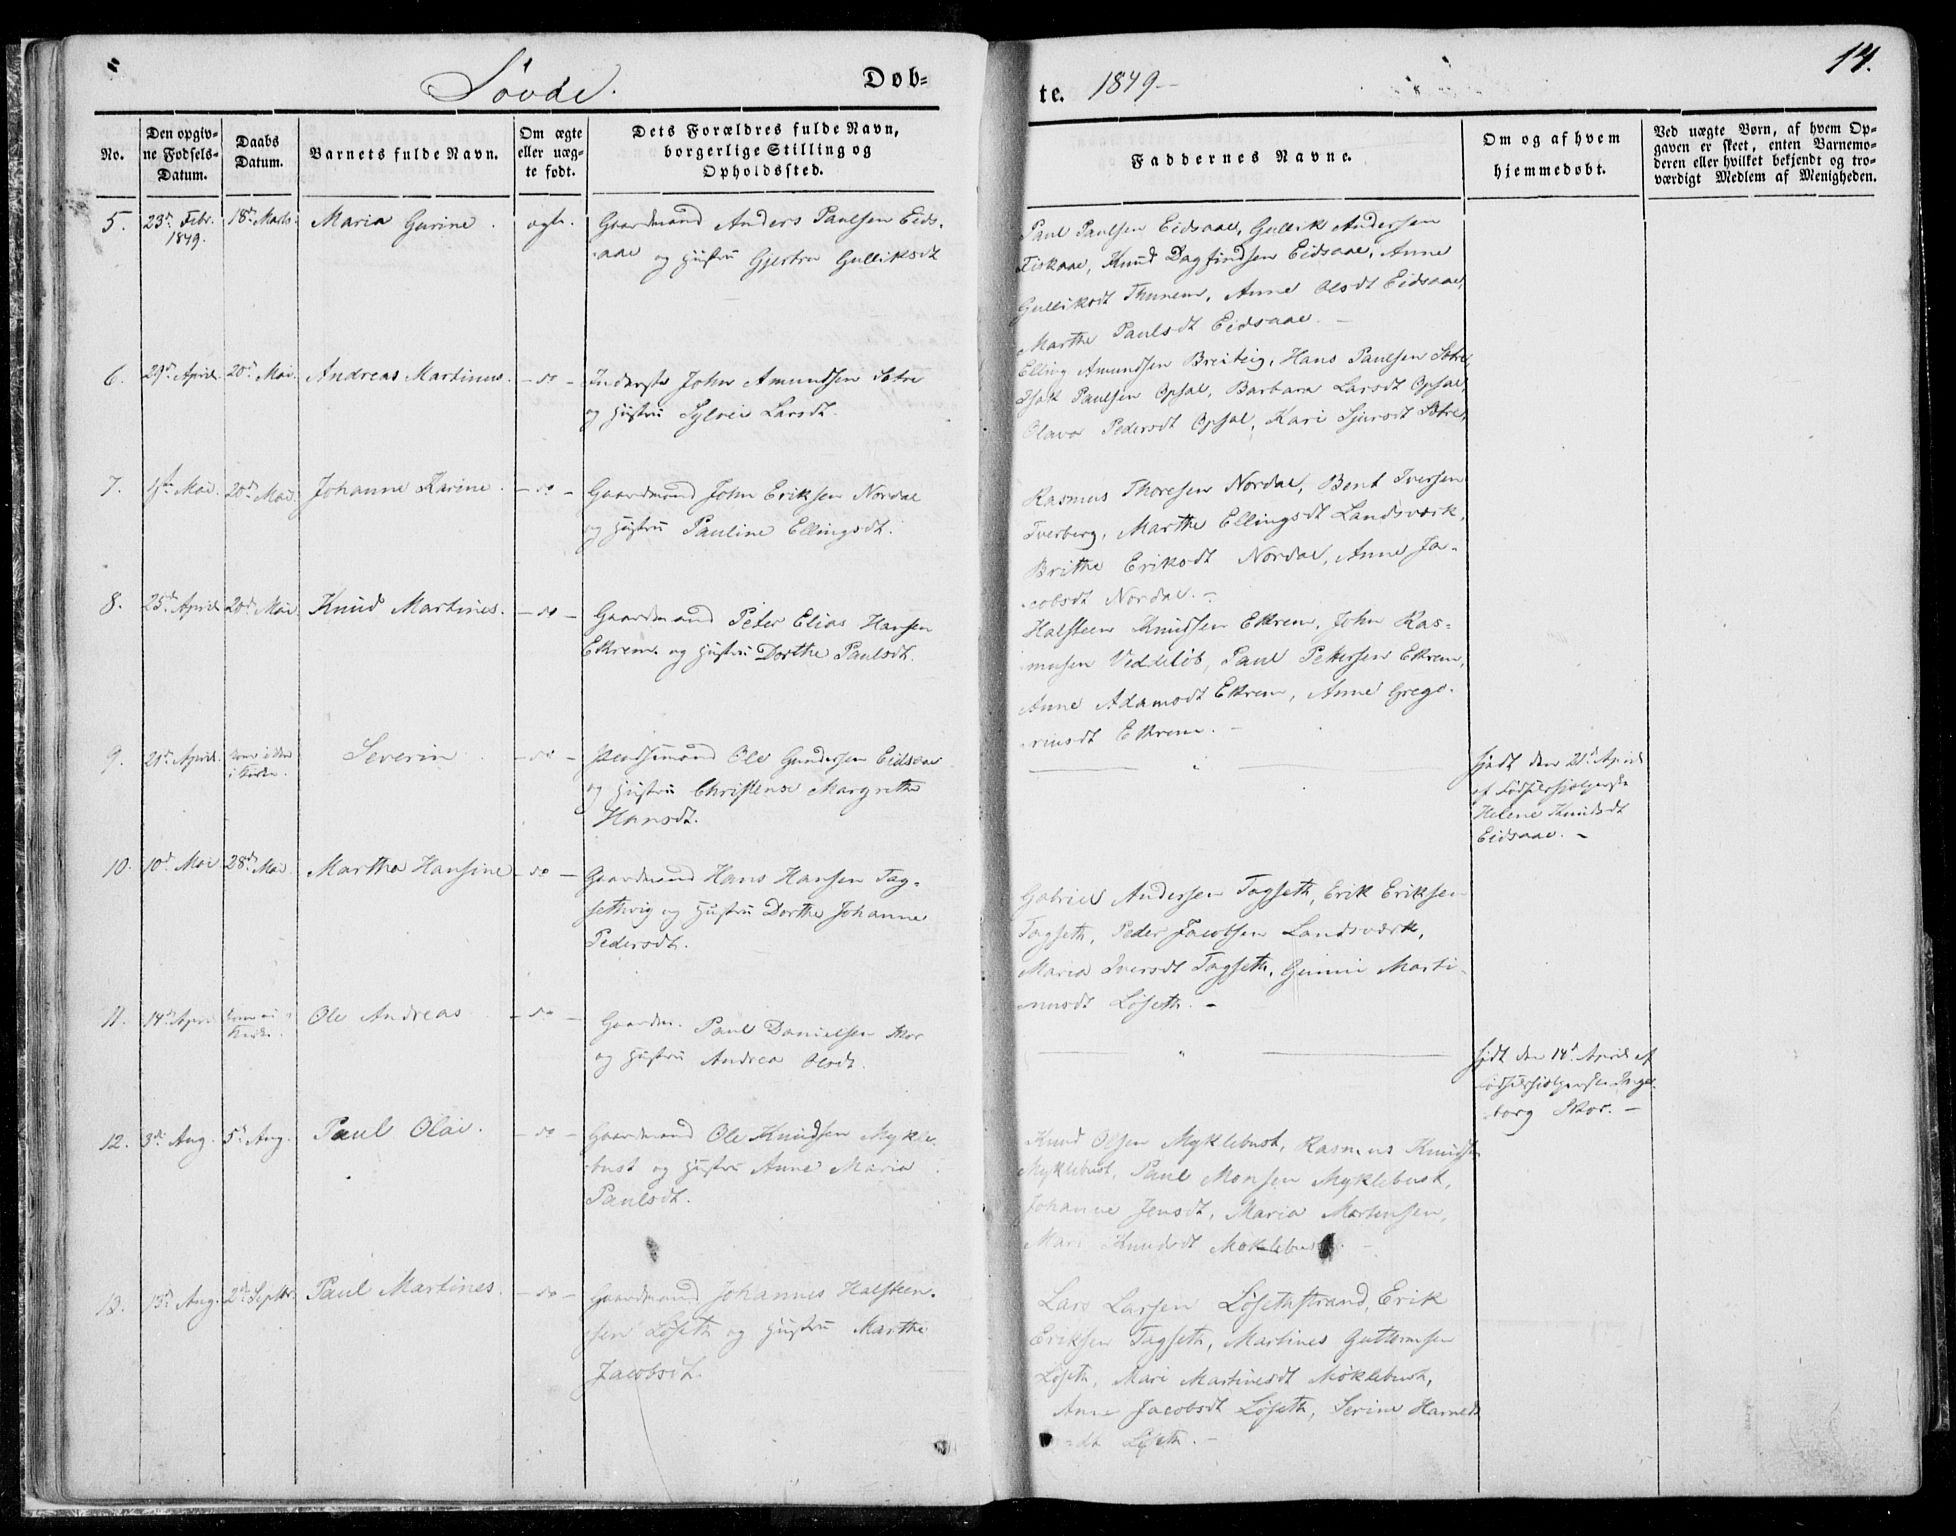 Søvde.
Døb=
te. 1849
14.
No.
Den opgiv=
ne Fødsels=
Datum.
Daabs
Datum.
Barnets fulde Navn.
Om ægte
eller uæg=
te født.
Dets Forældres fulde Navn,
borgerlige Stilling og
Opholdssted.
Faddernes Navne.
Om og af hvem
hjemmedøbt.
Ved uægte Børn, af hvem Op=
gaven er skeet, enten Barnemo=
deren eller hvilket bekjendt og tro=
værdigt Medlem af Menigheden.
5.
23d Febr.
1849.
18d Marts.
Maria Gurine.
ægte.
Gaardmand Anders Paulsen Eids-
aae og Hustru Gjertru Gulliksdt
Paul Paulsen Eidsaae, Gullik Andersen
Fiskaae, Knud Dagfindsen Eidsaae, Anne
Gulliksdt Thunem, Anne Olsdt Eidsaae,
Marthe Paulsdt Eidsaae.
6.
29d April.
20d Mai.
Andreas Martinus.
- do -
Inderste John Amundsen Sætre
og Hustru Sylvei Larsdt.
Elling Amundsen Breiteig, Hans Paulsen Sætre,
Isak Paulsen Opsal, Barbara Larsdt Opsal,
Olava Pedersdt Opsal, Kari Sjursdt Sætre,
7.
1ste Mai.
20d Mai.
Johanne Karine.
- do -
Gaardmand John Eriksen Nordal
og Hustru Pauline Ellingsdt.
Rasmus Thoresen Nordal, Bent Iversen
Tverberg, Marthe Ellingsdt Landsværk,
Brithe Eriksdt Nordal, Anne Ja-
cobsdt Nordal. -
8.
25d April
20d Mai.
Knud Martines.
- do -
Gaardmand Peter Elias Hansen
Ekrem. og Hustru Dorthe Paulsdt.
Halsteen Knudsen Ekrem, John Ras-
musen Veddeløb, Paul Pettersen Ekrem,
Anne Adamsdt Ekrem, Anne Grego-
riusdt Ekrem. -
9.
21d April.
Severin
- do -
Ole Gundersen Eidsaae
og Hustru Christense Margrethe
Hansdt.
født den 21d April
af Fødselshjelperske
Helene Knudsdt
Eidsaae. -
10.
10d Mai
28d Mai.
Martha Hansine
- do -
Gaardmand Hans Hansen Tag-
sethvig og Hustru Dorthe Johanne
Pedersdt.
Gabriel Andersen Tagseth, Erik Eriksen
Tagseth, Peder Jacobsen Landsværk,
Maria Iversdt Tagseth, Gunni Marti-
nusdt Løseth. -
11.
14d April
Ole Andreas
- do -
Gaardm. Paul Danielsen Skor
og Hustru Andrea Olsdt.
født den 14d April af
Fødselshjelperske Inge-
borg Skor. -
12.
3d Aug.
5d Aug.
Paul Olai.
- do -
Gaardmand Ole Knudsen Mykle-
bust og Hustru Anne Maria
Paulsdt.
Knud Olsen Myklebust, Rasmus Knudsen
Myklebust, Paul Monsen Myklebust,
Johanne Jensdt, Maria Mortensen,
Mari Knudsdt Møklebust. -
13.
13d Aug.
2d Septbr.
Paul Martines.
- do -
Gaardmand Johannes Halsteen-
sen Løseth og Hustru Marthe
Jacobsdt.
Lars Larsen Løsethstrand, Erik
Eriksen Tagseth, Martines Guttormsen
Løseth, Mari Martinesdt Møklebust,
Anne Jacobsdt Løseth, Serine
Løseth. -